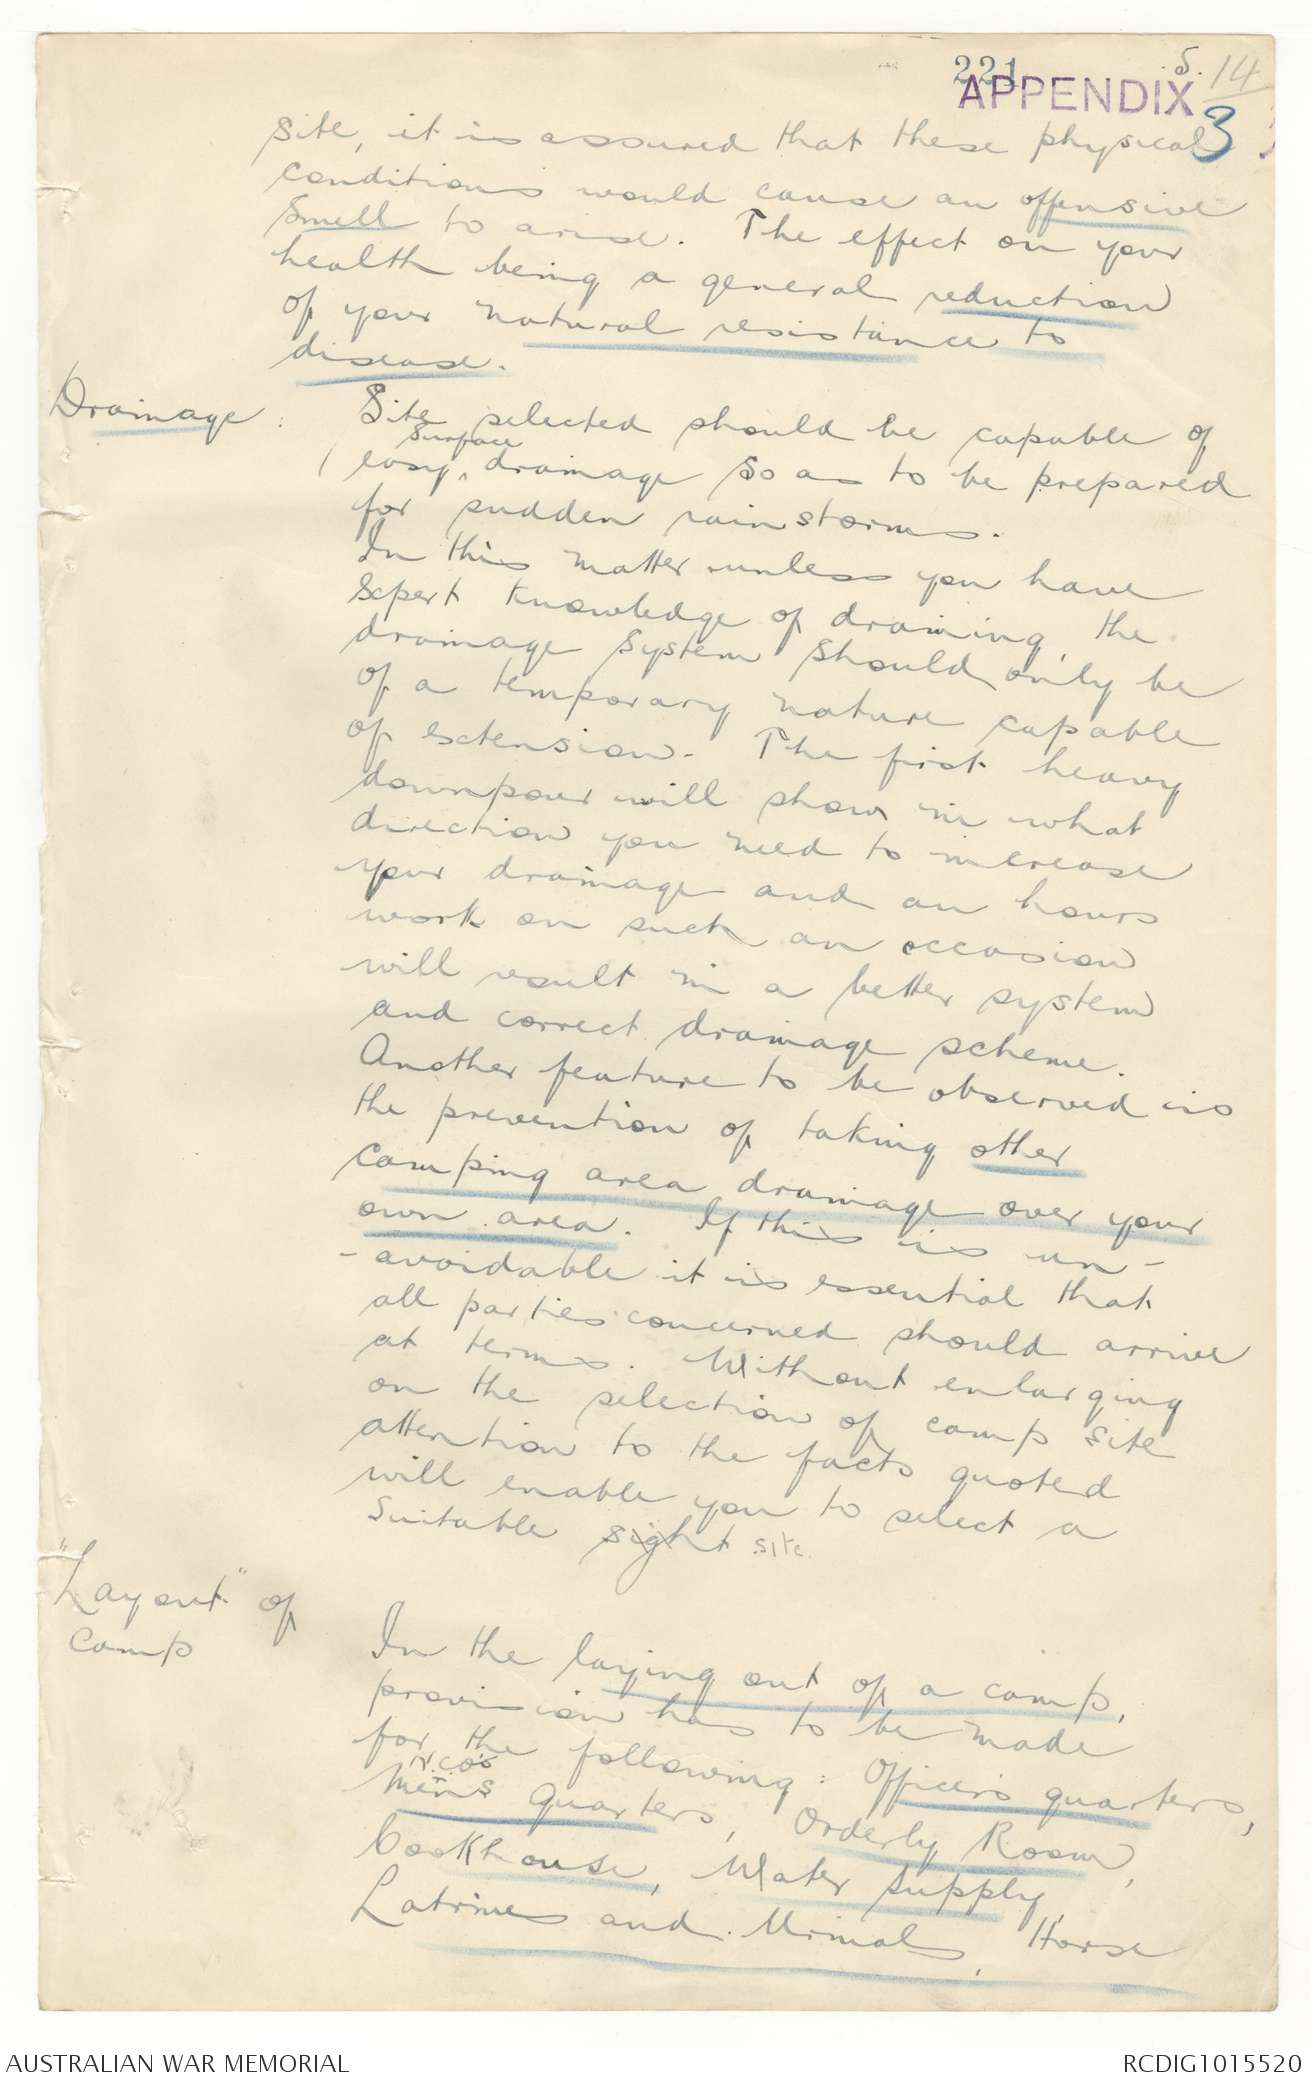 221 5. 14
APPENDIX 3
site, it is assured that these physical
conditions would cause an offensive
smell to arise. The effect on your
health being a general reduction
of your natural resistance to
disease.
Drainage: Site selected should be capable of
easy surface drainage so as to be prepared
for sudden rainstorms.
In this matter unless you have
expert knowledge of draining, the
drainage system should only be
of a temporary nature capable
of extension. The first heavy
downpour will show in what
direction you need to increase
your drainage and an hours
work on such an occasion
will result in a better system
and correct drainage scheme.
Another feature to be observed is
the prevention of taking other
camping area drainage over your
own area. If this is un-
-avoidable it is essential that
all parties concerned should arrive
at terms. Without enlarging
on the selection of camp site
attention to the facts quoted
will enable you to select a
suitable sight site.
"Layout" of
Camp
In the laying out of a camp,
provision has to be made
for the following: Officers quarters,
N.C.O's
Men's Quarters, Orderly Room,
Cookhouse, Water Supply,
Latrines and Urinals, Horse
AUSTRALIAN WAR MEMORIAL RCDIG1015520